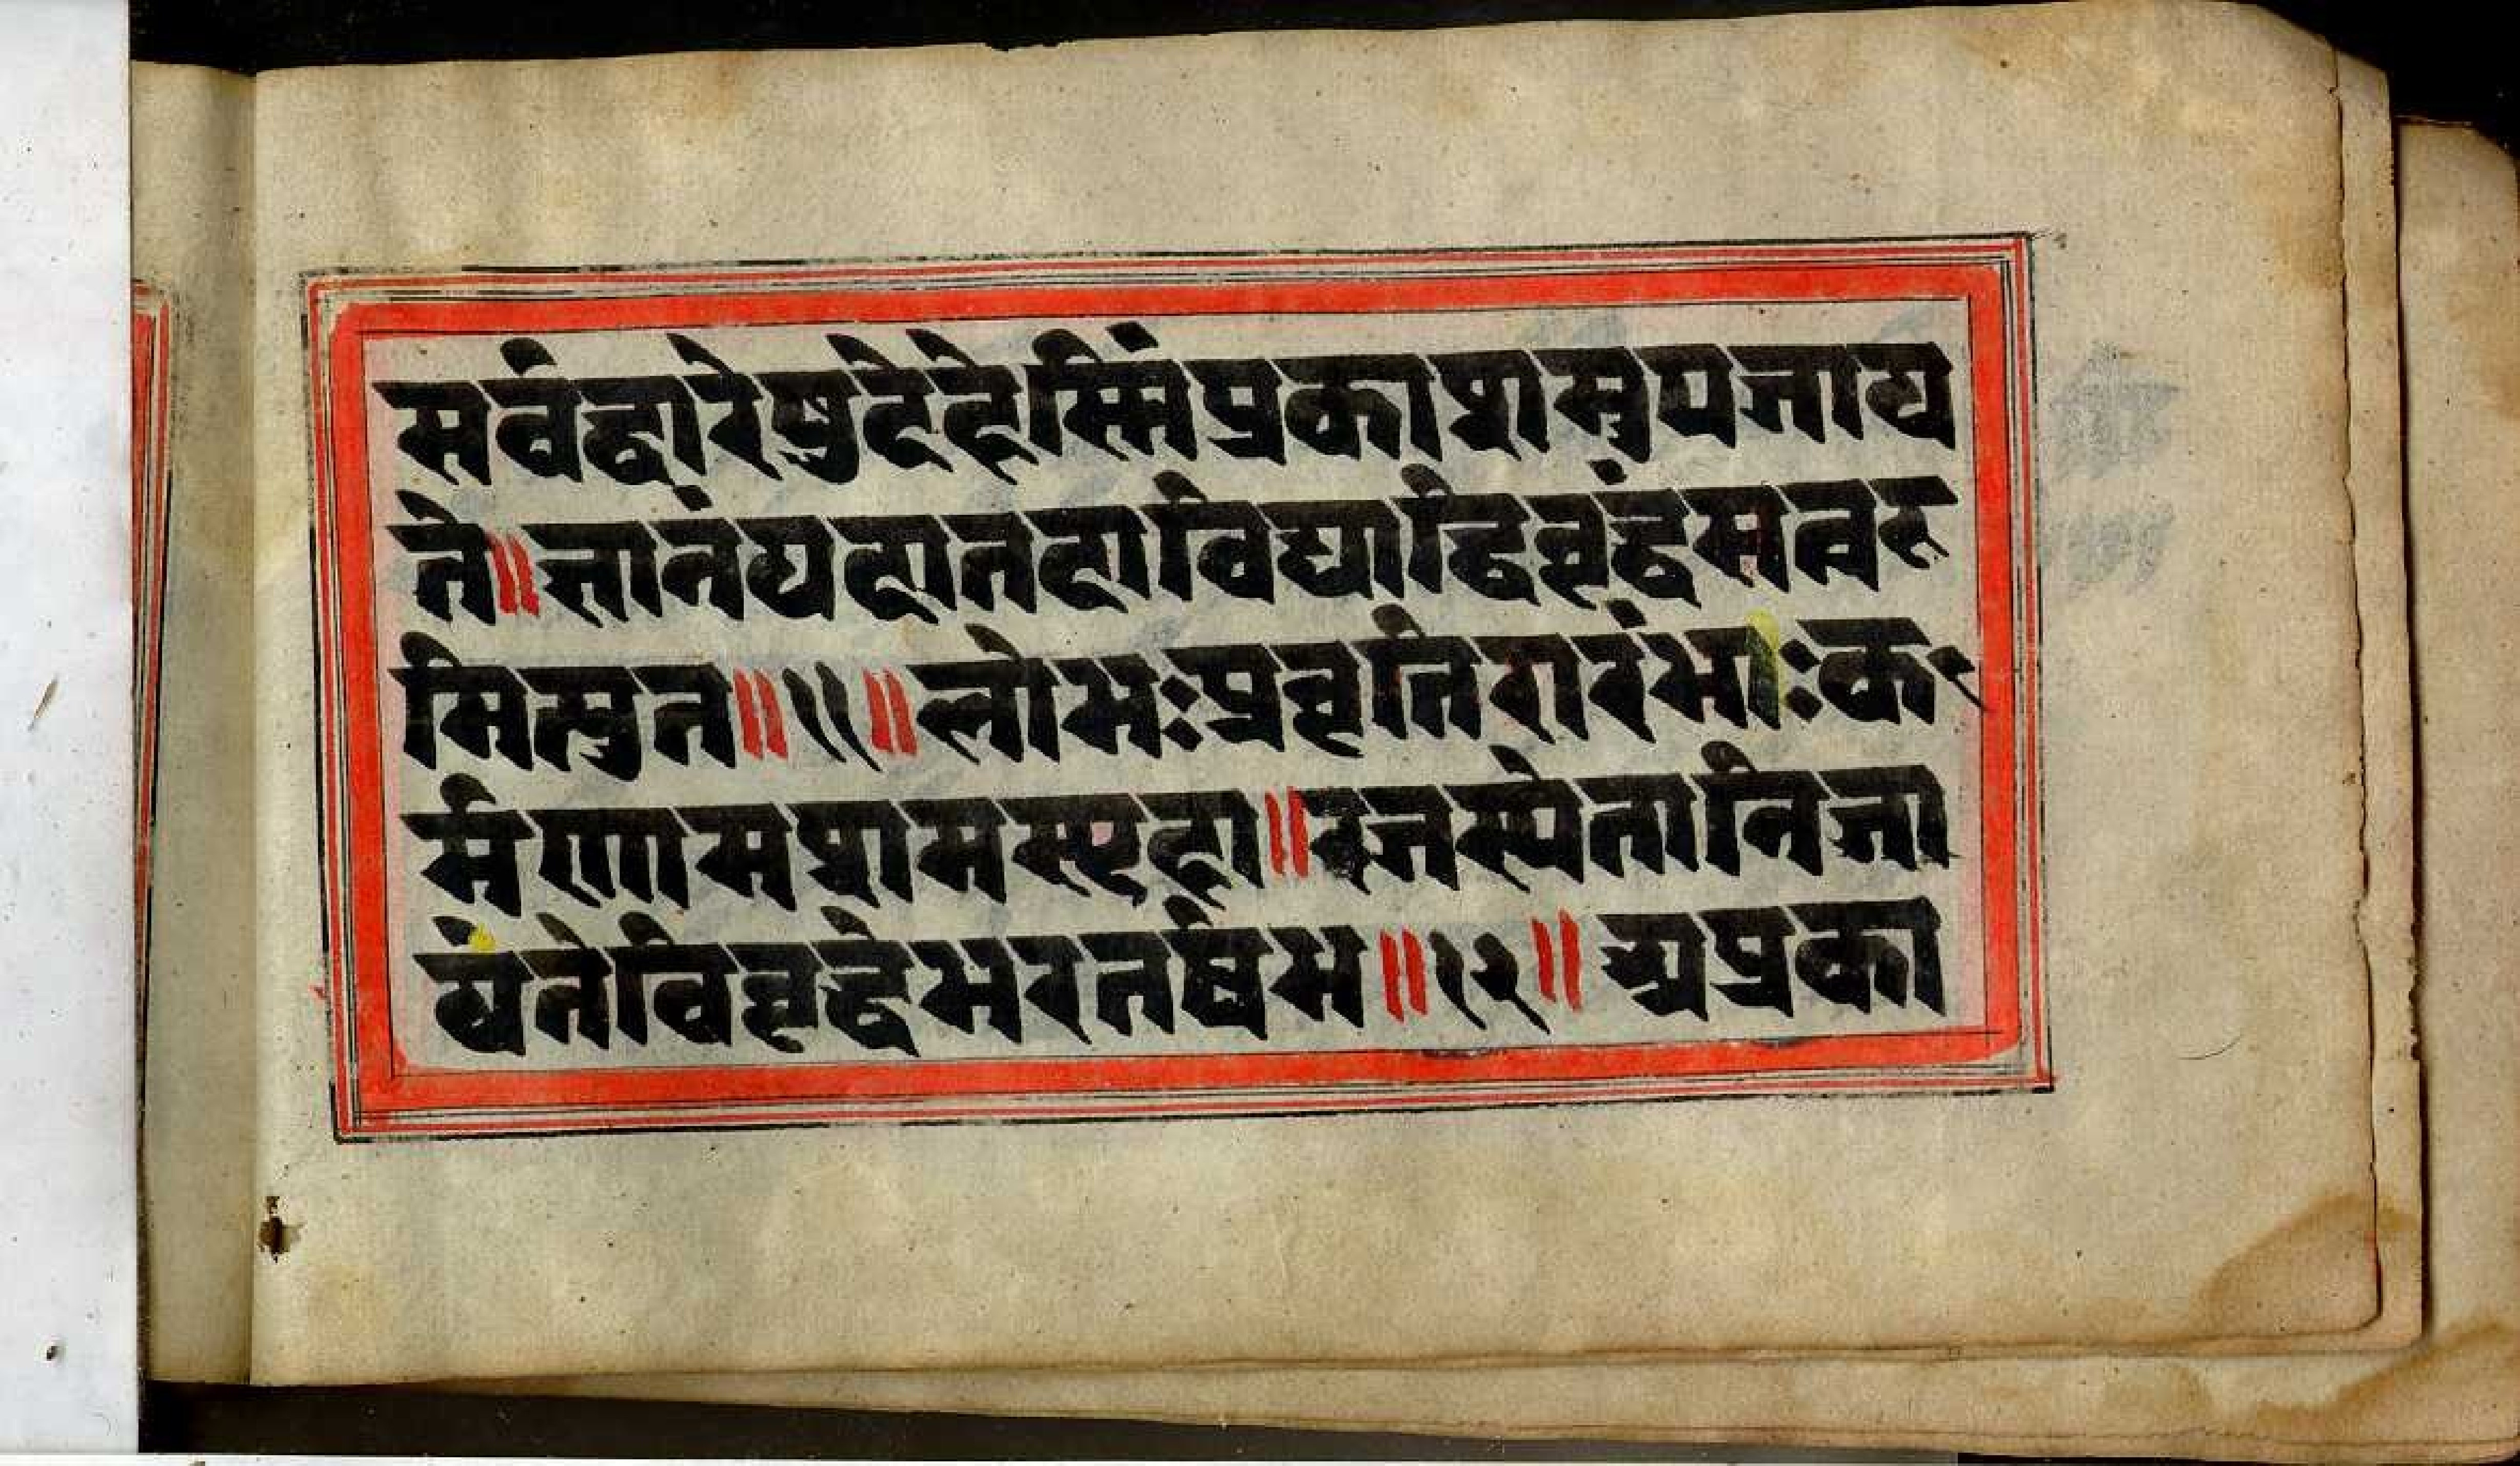 सर्वद्वारेषुदेहेस्मिंप्रकाशसुपजाय
ते॥ज्ञानंयदातदाविद्याद्विवृद्धंसत्वरु
मित्युत॥११॥लोभःप्रवृतिरारंभाःक
र्मणामशमस्पृहा॥रजस्येतानिजा
यंतेविवृद्धेभरतर्षभ॥१२॥अप्रका